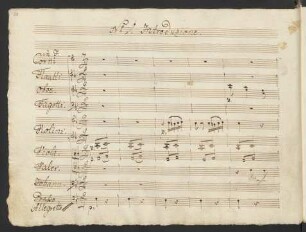 N.º 1. Introduzione
Corni
Flauti
Oboe
Fagotti
Violini
Viole
Valer.
Basso
Allegretto